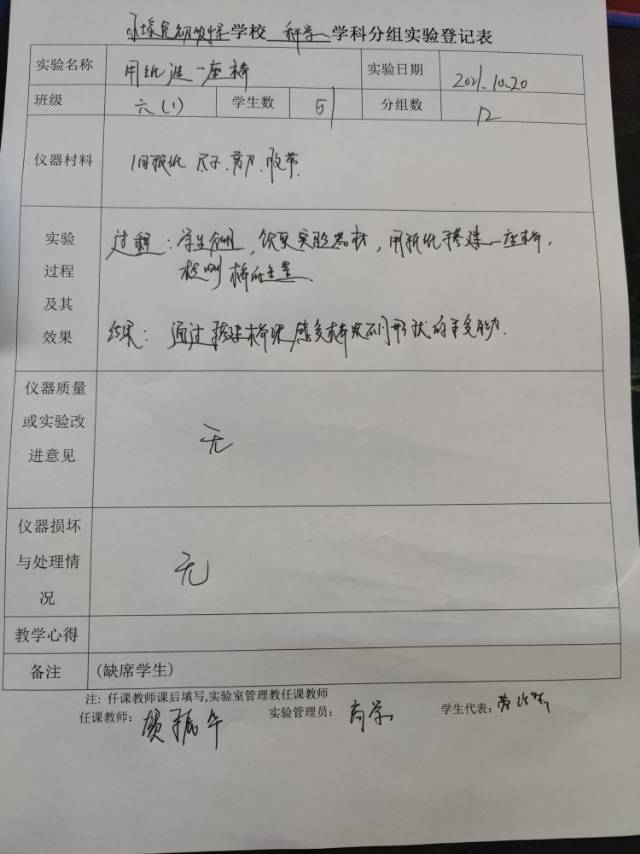 学校 科学 学科分组实验登记表
实验名称 用纸造一座桥 实验日期 2021.10.20
班级 六(1) 学生数 51 分组数 12
仪器村料 旧报纸 尺子.剪刀.胶带.
实验
过程
及其
效果
过程:学生分组,领取实验器材,用报纸搭建一座桥,
检测桥的
结果: 通过搭建桥梁感受桥梁不同形状的承受能力.
仪器质量
或实验改
进意见
无
仪器损坏
与处理情
况
无
教学心得
备注 (缺席学生)
注: 仟课教师课后填写,实验室管理教任课教师
任课教师: 实验管理员: 学生代表: